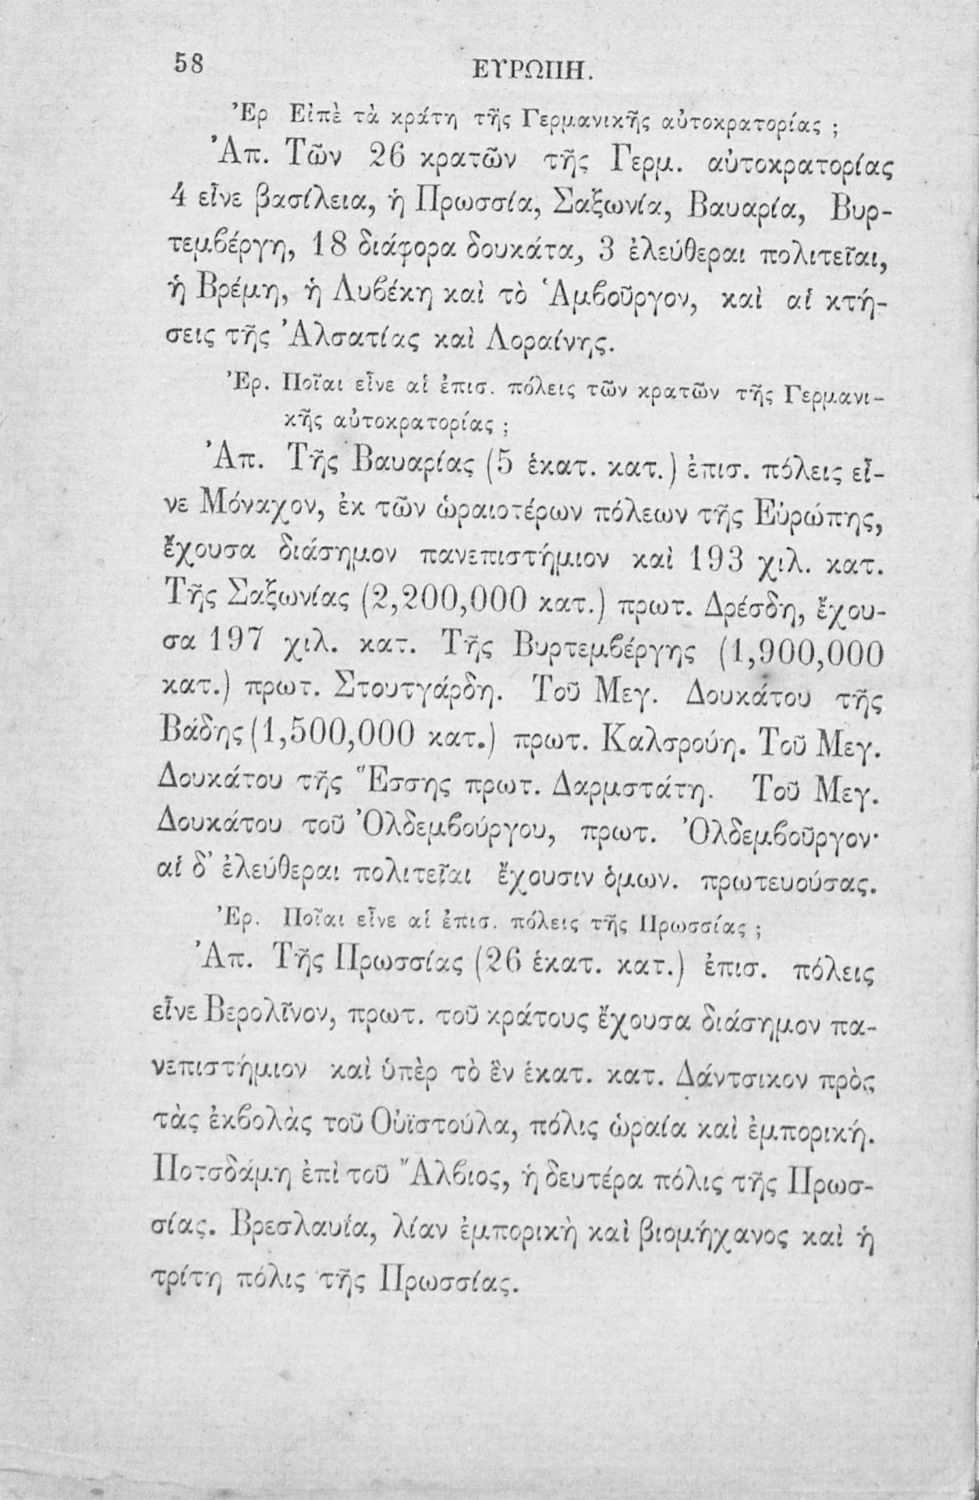 58
ΕΥΡΩΠΗ.
Ἐρ Εἰπὲ τὰ κράτη τῆς Γερμανικῆς αὐτοκρατορίας ;
Ἀπ. Τῶν 26 κρατῶν τῆς Γερμ. αὐτοκρατορίας
4 εἶνε βασίλεια, ἡ Πρωσσία, Σαξωνία, Βαυαρία, Βυρ-
τεμβέργη, 18 διάφορα δουκάτα, 3 ἐλεύθεραι πολιτεῖαι,
ἡ Βρέμη, ἡ Λυβέκη καὶ τὸ Ἁμβοῦργον, καὶ αἱ κτή-
σεις τῆς Ἀλσατίας καὶ Λοραίνης.
Ἐρ. Ποῖαι εἶνε αἱ ἐπισ. πόλεις τῶν κρατῶν τῆς Γερμανι-
κῆς αὐτοκρατορίας ;
Ἀπ. Τῆς Βαυαρίας (5 ἑκατ. κατ.) ἐπισ. πόλεις εἶ-
νε Μόναχον, ἐκ τῶν ὡραιοτέρων πόλεων τῆς Εὐρώπης,
ἔχουσα διάσημον πανεπιστήμιον καὶ 193 χιλ. κατ.
Τῆς Σαξωνίας (2,200,000 κατ.) πρωτ. Δρέσδη, ἔχου-
σα 197 χιλ. κατ. Τῆς Βυρτεμβέργης (1,900,000
κατ.) πρωτ. Στουτγάρδη. Τοῦ Μεγ. Δουκάτου τῆς
Βάδης (1,500,000 κατ.) πρωτ. Καλσρούη. Τοῦ Μεγ.
Δουκάτου τῆς Ἕσσης πρωτ. Δαρμστάτη. Τοῦ Μεγ.
Δουκάτου τοῦ Ὀλδεμβούργου, πρωτ. Ὀλδεμβοῦργον·
αἱ δ' ἐλεύθεραι πολιτεῖαι ἔχουσιν ὁμων. πρωτευούσας.
Ἐρ. Ποῖαι εἶνε αἱ ἐπισ. πόλεις τῆς Πρωσσίας ;
Ἀπ. Τῆς Πρωσσίας (26 ἑκατ. κατ.) ἐπισ. πόλεις
εἶνε Βερολῖνον, πρωτ. τοῦ κράτους ἔχουσα διάσημον πα-
νεπιστήμιον καὶ ὑπὲρ τὸ ἓν ἑκατ. κατ. Δάντσικον πρὸς
τὰς ἐκβολὰς τοῦ Οὐϊστούλα, πόλις ὡραία καὶ ἐμπορική.
Ποτσδάμη ἐπὶ τοῦ Ἄλβιος, ἡ δευτέρα πόλις τῆς Πρωσ-
σίας. Βρεσλαυΐα, λίαν ἐμπορικὴ καὶ βιομήχανος καὶ ἡ
τρίτη πόλις τῆς Πρωσσίας.